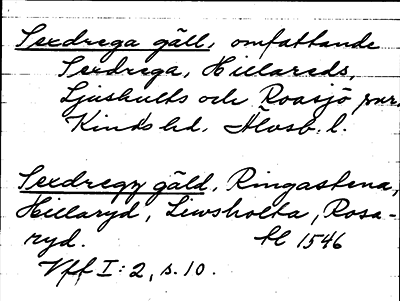 Sexdrega gäll, omfattande
Sexdrega, Hillareds,
Ljushults och Roasjö snr.
Kinds hd, Älvsb. l.
Sexdregy gäld, Ringastena,
Hillaryd, Liwsholta, Rosa-
ryd. hl 1546
Vff I: 2, s. 10.